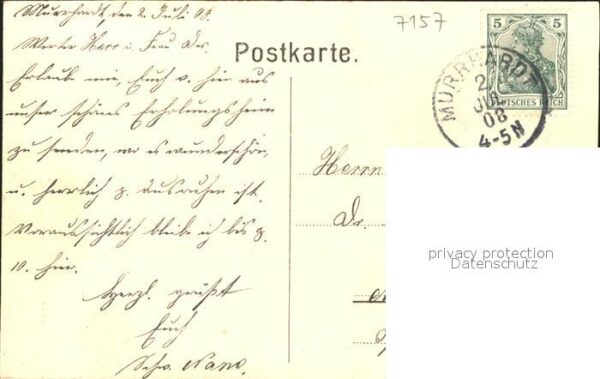 Murrhardt, den 2. Juli 08.
Werter Herr u. Frau Dr.
Erlaube mir, Euch v. hier aus
unser schönes Erholungsheim
zu senden, wo es wunderschön,
u. herrlich z. ausruhen ist.
Voraussichtlich bleibe ich bis z.
10. hier.
Herzl. grüßt
Euch
Schw. Nane.
7157
Postkarte.
5 5
DEUTSCHES REICH
MURRHARDT
2
JUL
08
4-5N
Herrn
Dr.
privacy protection
Datenschutz